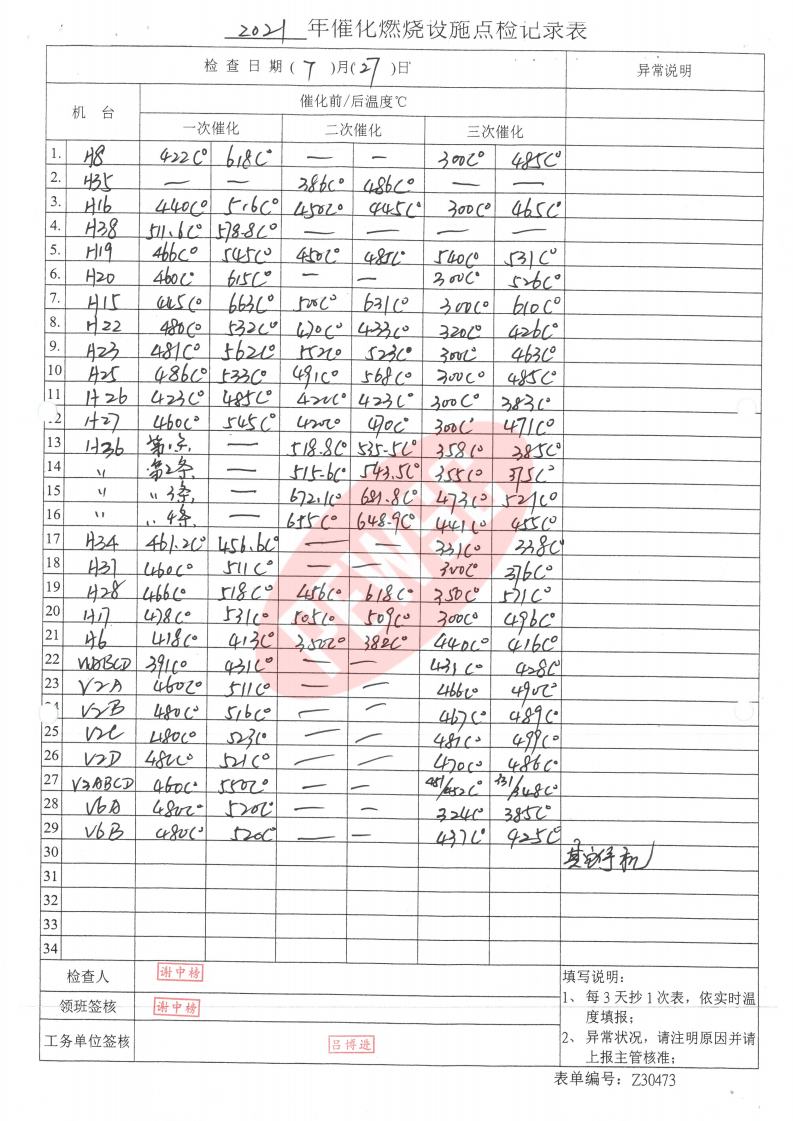 2021 年催化燃烧设施点检记录表
检查日期(7)月(27)日 异常说明
机 台 催化前/后温度℃
一次催化 二次催化 三次催化
1. H8 422C° 618C° — — 300C° 485C°
2. H35 — — 386C° 486C° — —
3. H16 440C° 516C° 450C° 445C° 300C° 465C°
4. H38 511.6C° 578.8C° — — — —
5. H19 466C° 545C° 450C° 485C° 540C° 531C°
6. H20 460C° 615C° — — 300C° 526C°
7. H15 445C° 663C° 500C° 631C° 300C° 610C°
8. H22 480C° 532C° 470C° 433C° 320C° 426C°
9. H23 481C° 562C° 552C° 523C° 300C° 463C°
10 H25 486C° 533C° 491C° 568C° 300C° 485C°
11 H26 423C° 485C° 422C° 423C° 300C° 383C°
12 H27 460C° 545C° 420C° 470C° 300C° 471C°
13 H36 第1条 — 518.8C° 535.5C° 358C° 385C°
14 〃 第2条 — 515.6C° 543.5C° 355C° 375C°
15 〃 〃3条 — 672.1C° 681.8C° 473C° 521C°
16 〃 〃4条 — 655C° 648.9C° 441C° 455C°
17 H34 461.2C° 456.6C° — — 331C° 338C°
18 H37 460C° 511C° — — 300C° 376C°
19 H28 466C° 518C° 456C° 618C° 350C° 571C°
20 H17 478C° 531C° 505C° 509C° 300C° 496C°
21 H6 418C° 413C° 350C° 382C° 440C° 416C°
22 391C° 431C° — — 431C° 428C°
23 V2A 460C° 511C° — — 466C° 490C°
V2B 480C° 516C° — — 467C° 489C°
25 V2C 480C° 523C° — — 481C° 499C°
26 V2D 480C° 521C° — — 470C° 486C°
27 V3ABCD 460C° 550C° — —
28 V6A 480C° 520C° — — 324C° 385C°
29 V6B 480C° 520C° — — 437C° 925C°
30 其它停机
31
32
33
34
检查人 谢中榜
领班签核 谢中榜
工务单位签核 吕博进
填写说明：
1、每3天抄1次表，依实时温
度填报；
2、异常状况，请注明原因并请
上报主管核准；
表单编号：Z30473